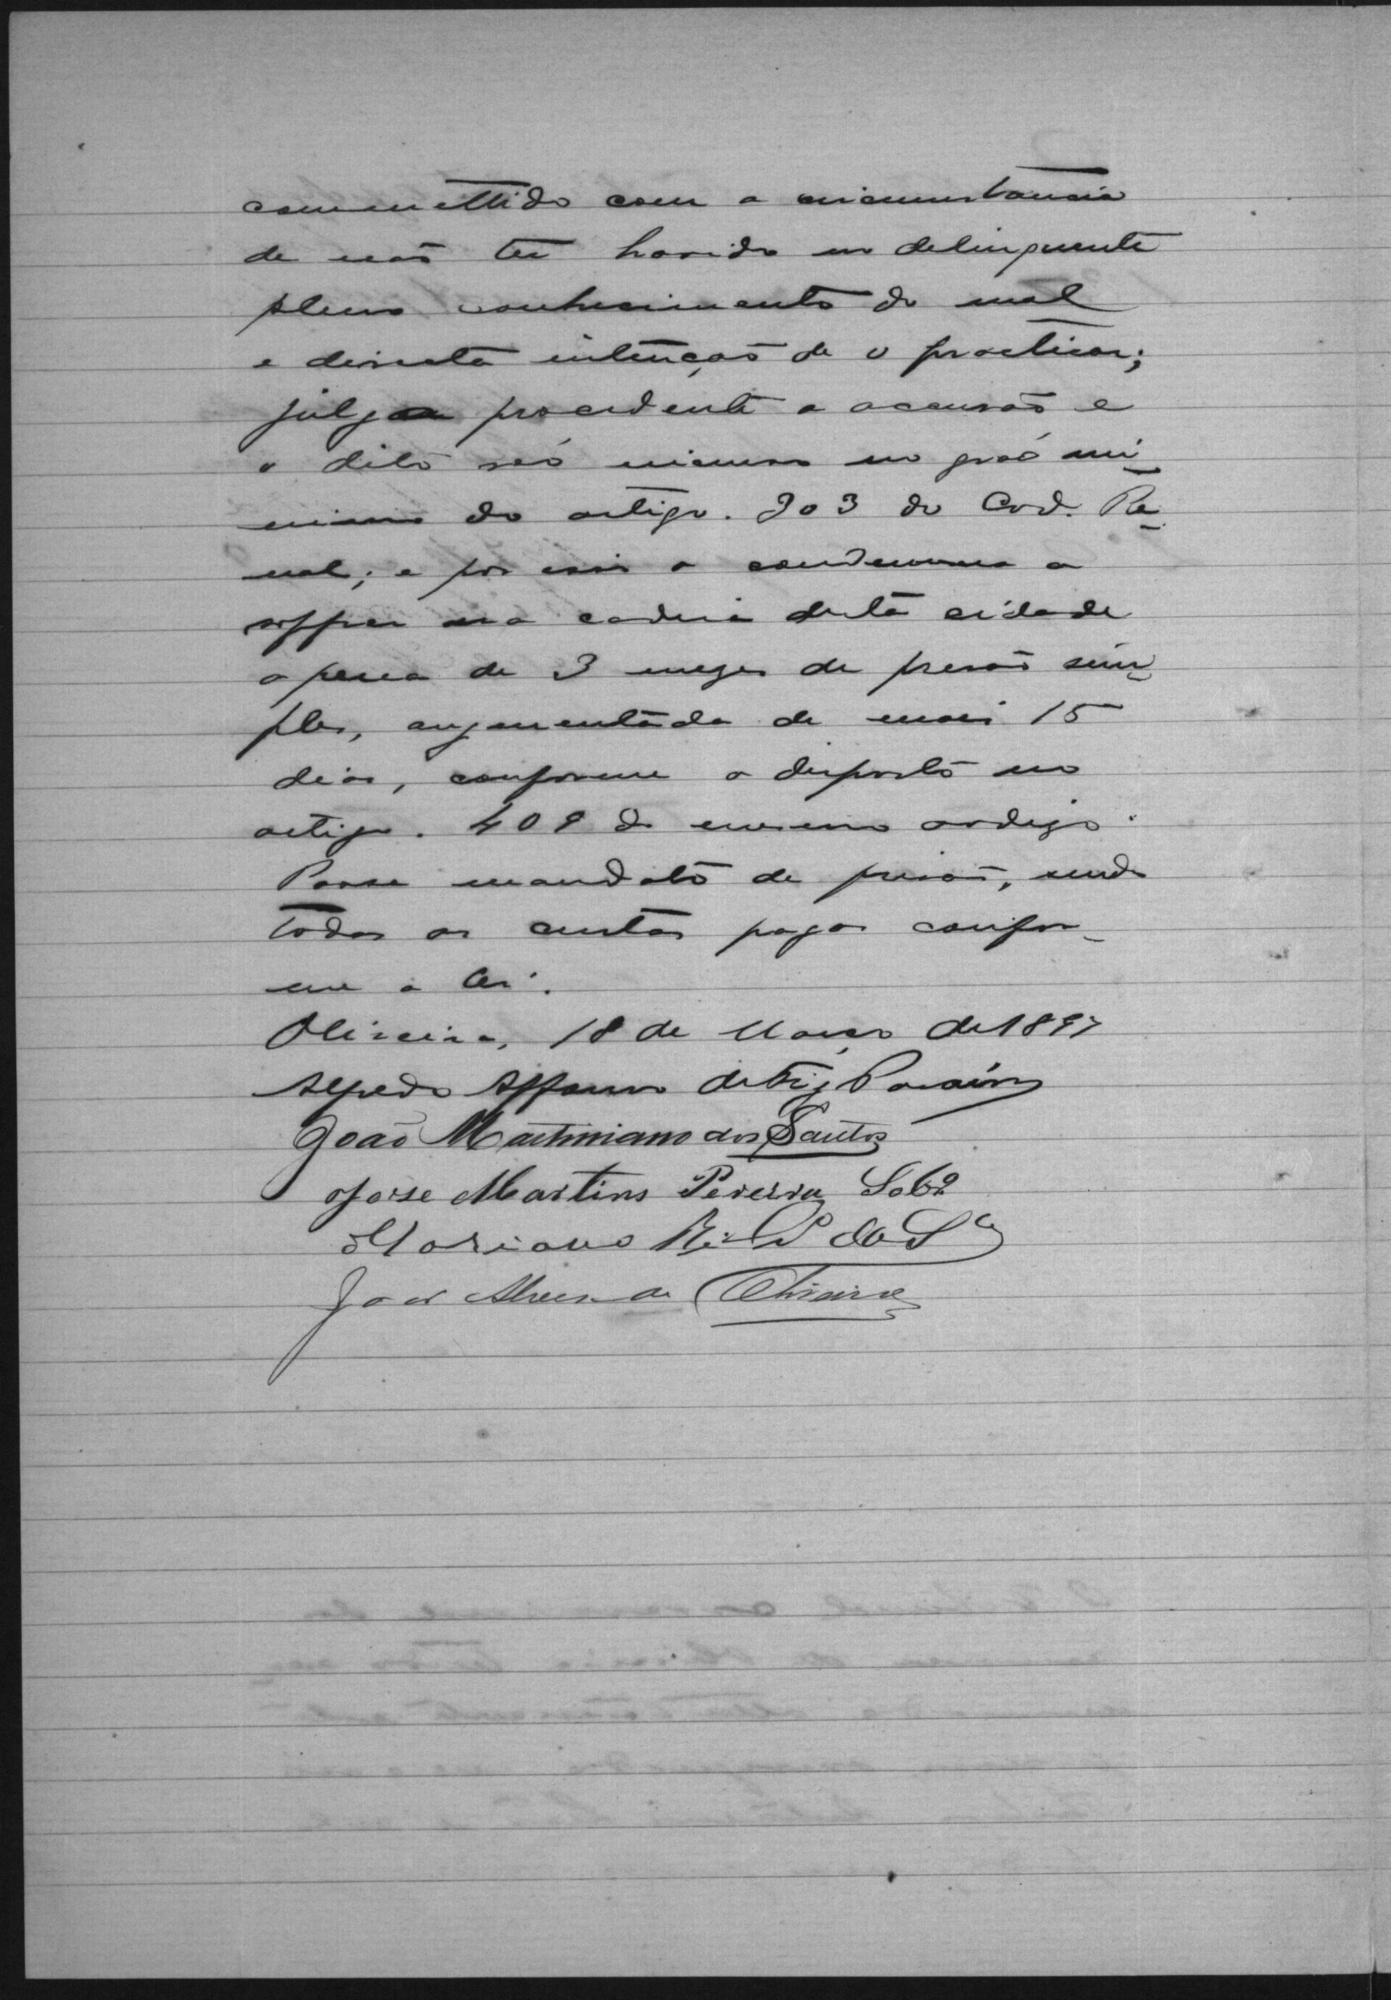 commettido com a circumstancia
de não ter havido no delinquente
pleno conhecimento do mal
e directa intenção de o practicar;
julga procedente a accusão e
o dito réo incurso no gráo mi-
nimo do artigo. 303 do Cod. Pe-
nal; e por isso o condemna a
soffrer na cadeia desta cidade
a pena de 3 mezes de prisão sim-
ples, augmentada de mais 15
dias, conforme o disposto no
artigo. 409 do mesmo codigo.
Passe mandato de prisão, sendo
todas as custas pagas confor-
me a lei.
Oliveira, 18 de Março de 1897
Alfredo Affonso de
João Martiniano dos Santos
José Martins Pereira Sobº
Mariano
João Alves de Oliveira